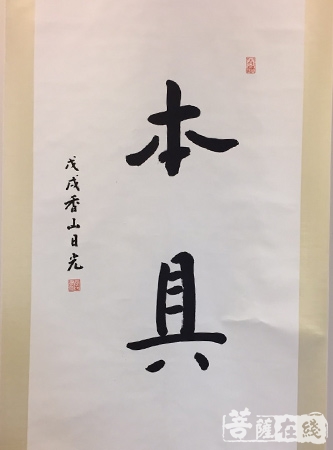 本具
戊戌香山日光
菩萨在线